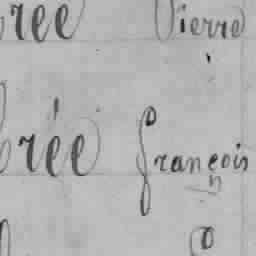 rée Pierre
rée françois